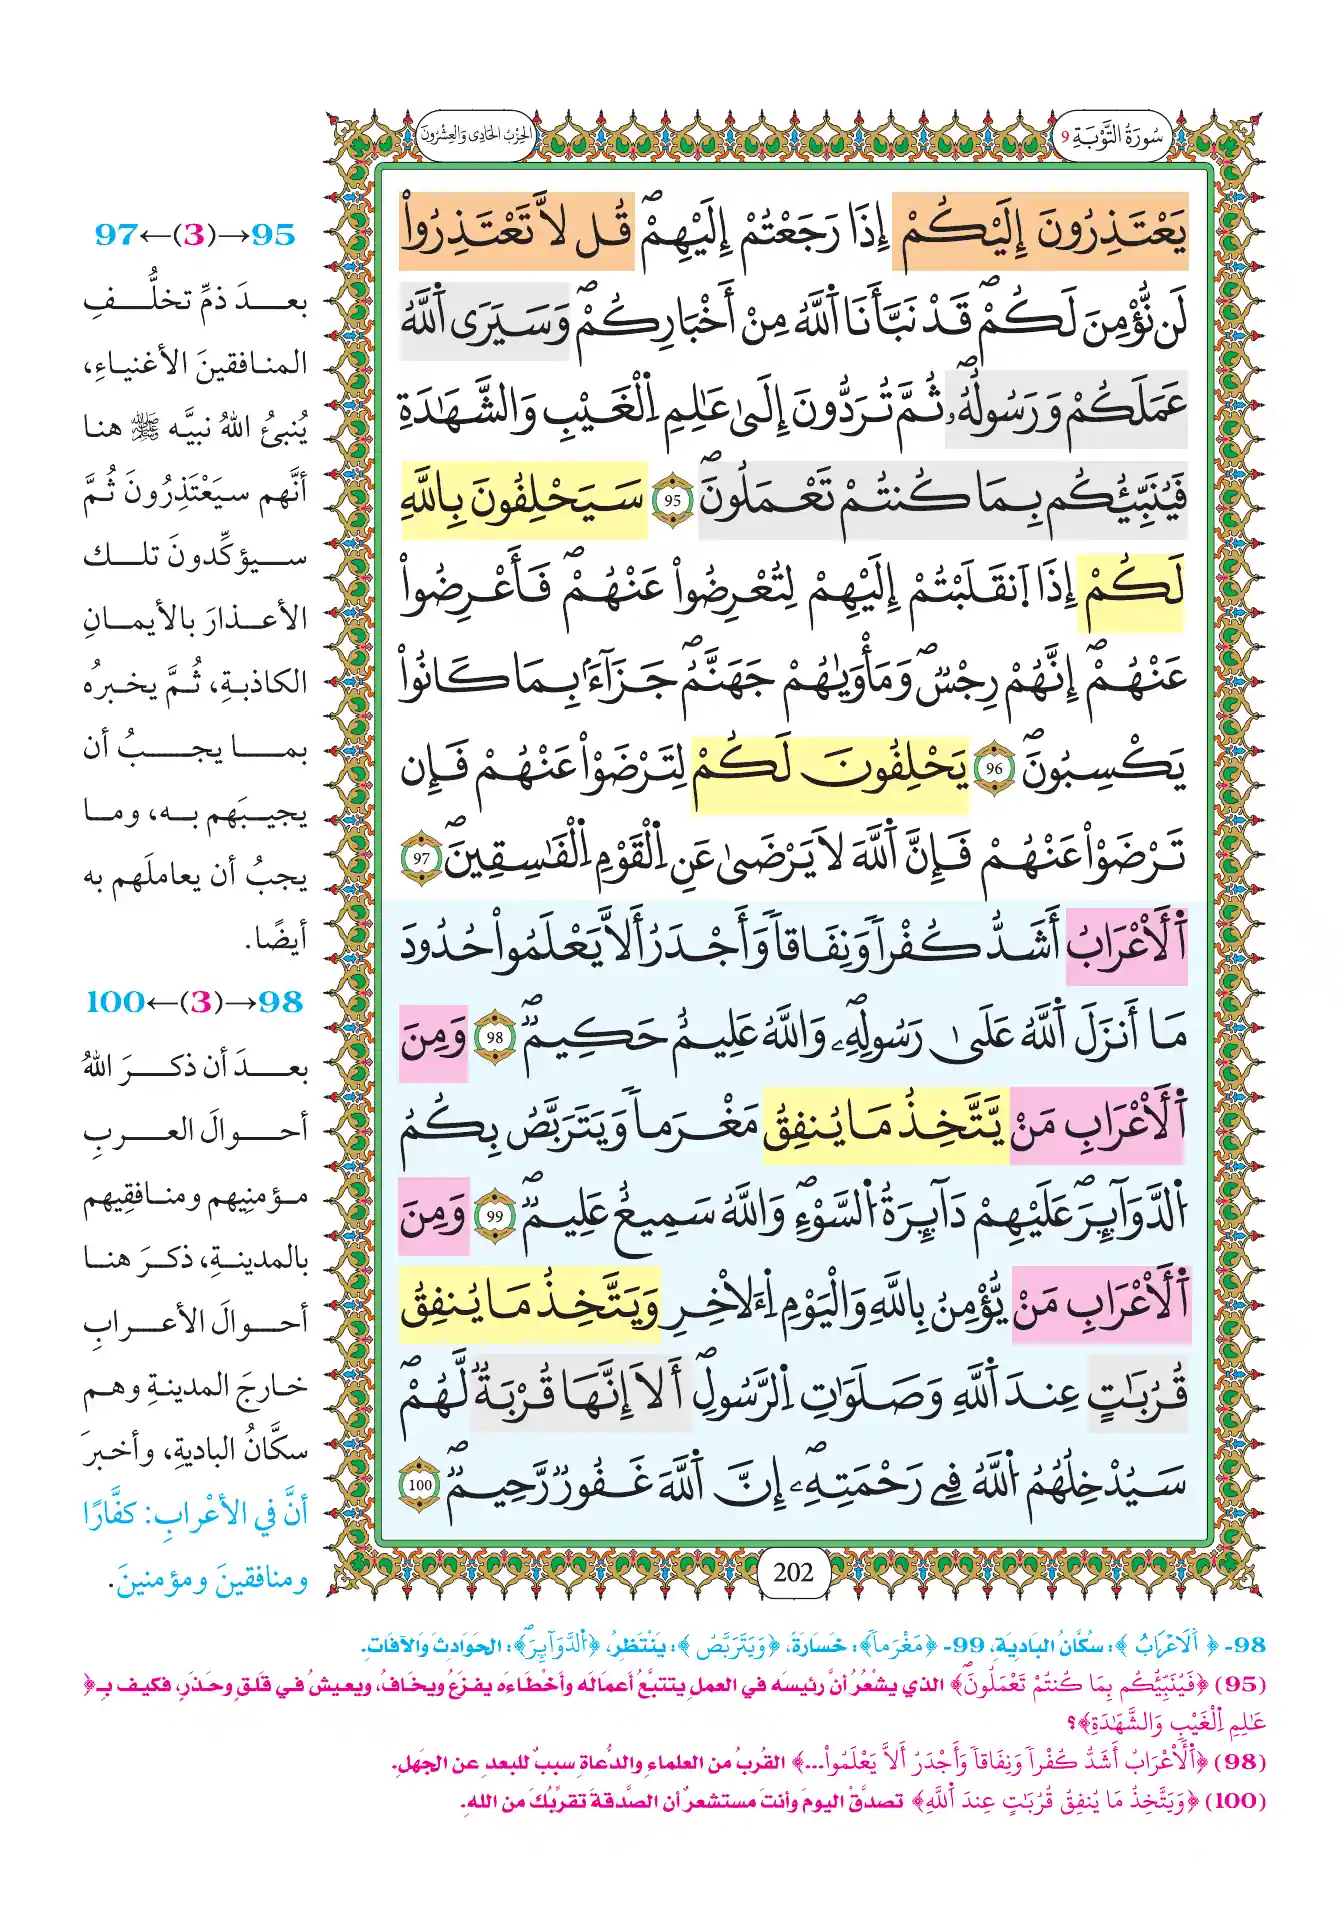 سُورَةُ التَّوْبَةِ 9
الحِزْبُ الحَادِي وَالعِشْرُونَ
يَعْتَذِرُونَ إِلَيْكُمْ إِذَا رَجَعْتُمْ إِلَيْهِمْۖ قُل لَّا تَعْتَذِرُواْ
لَن نُّؤْمِنَ لَكُمْۖ قَدْ نَبَّأَنَا اَ۬للَّهُ مِنْ أَخْبَارِكُمْۖ وَسَيَرَى اَ۬للَّهُ
عَمَلَكُمْ وَرَسُولُهُۥۖ ثُمَّ تُرَدُّونَ إِلَىٰ عَٰلِمِ اِ۬لْغَيْبِ وَالشَّهَٰدَةِ
فَيُنَبِّئُكُم بِمَا كُنتُمْ تَعْمَلُونَۖ 95 سَيَحْلِفُونَ بِاللَّهِ
لَكُمْ إِذَا اَ۪نقَلَبْتُمْ إِلَيْهِمْ لِتُعْرِضُواْ عَنْهُمْۖ فَأَعْرِضُواْ
عَنْهُمْۖ إِنَّهُمْ رِجْسٌۖ وَمَأْوَىٰهُمْ جَهَنَّمُۖ جَزَآءَۢ بِمَا كَانُواْ
يَكْسِبُونَۖ 96 يَحْلِفُونَ لَكُمْ لِتَرْضَوْاْ عَنْهُمْ فَإِن
تَرْضَوْاْ عَنْهُمْ فَإِنَّ اَ۬للَّهَ لَا يَرْضَىٰ عَنِ اِ۬لْقَوْمِ اِ۬لْفَٰسِقِينَۖ 97
اَ۬لْأَعْرَابُ أَشَدُّ كُفْراٗ وَنِفَاقاٗ وَأَجْدَرُ أَلَّا يَعْلَمُواْ حُدُودَ
مَا أَنزَلَ اَ۬للَّهُ عَلَىٰ رَسُولِهِۦۖ وَاللَّهُ عَلِيمٌ حَكِيمٌۖ 98 وَمِنَ
اَ۬لْأَعْرَابِ مَنْ يَّتَّخِذُ مَا يُنفِقُ مَغْرَماٗ وَيَتَرَبَّصُ بِكُمُ
اُ۬لدَّوَآئِرَۖ عَلَيْهِمْ دَآئِرَةُ اُ۬لسَّوْءِۖ وَاللَّهُ سَمِيعٌ عَلِيمٌۖ 99 وَمِنَ
اَ۬لْأَعْرَابِ مَنْ يُّؤْمِنُ بِاللَّهِ وَالْيَوْمِ اِ۬لَاخِرِ وَيَتَّخِذُ مَا يُنفِقُ
قُرُبَٰتٍ عِندَ اَ۬للَّهِ وَصَلَوَٰتِ اِ۬لرَّسُولِۖ أَلَا إِنَّهَا قُرْبَةٞ لَّهُمْۖ
سَيُدْخِلُهُمُ اُ۬للَّهُ فِي رَحْمَتِهِۦۖ إِنَّ اَ۬للَّهَ غَفُورٞ رَّحِيمٌۖ 100
202
97←(3)→95
بعدَ ذمِّ تخلُّفِ
المنافقينَ الأغنياءِ،
يُنبئُ اللهُ نبيَّه ﷺ هنا
أنَّهم سيَعْتَذِرُونَ ثُمَّ
سيؤكِّدونَ تلك
الأعذارَ بالأيمانِ
الكاذبةِ، ثُمَّ يخبرُه
بما يجبُ أن
يجيبَهم به، وما
يجبُ أن يعاملَهم به
أيضًا.
100←(3)→98
بعدَ أن ذكرَ اللهُ
أحوالَ العربِ
مؤمنِيهم ومنافقِيهم
بالمدينةِ، ذكرَ هنا
أحوالَ الأعرابِ
خارجَ المدينةِ وهم
سكَّانُ الباديةِ، وأخبرَ
أنَّ في الأعْرابِ: كفَّارًا
ومنافقينَ ومؤمنينَ.
98- ﴿اَ۬لْأَعْرَابُ﴾: سُكَّانُ البَادِيَةِ، 99- ﴿مَغْرَماٗ﴾: خَسَارَةً، ﴿وَيَتَرَبَّصُ﴾: يَنْتَظِرُ، ﴿اُ۬لدَّوَآئِرَۖ﴾: الحَوَادِثَ وَالآفَاتِ.
(95) ﴿فَيُنَبِّئُكُم بِمَا كُنتُمْ تَعْمَلُونَۖ﴾ الذي يشْعُرُ أنَّ رئيسَه في العملِ يتتبَّعُ أعمالَه وأخْطاءَه يفزَعُ ويخافُ، ويعيشُ في قلقٍ وحذَرٍ، فكيف بـ﴿
عَٰلِمِ اِ۬لْغَيْبِ وَالشَّهَٰدَةِ﴾؟
(98) ﴿اَ۬لْأَعْرَابُ أَشَدُّ كُفْراٗ وَنِفَاقاٗ وَأَجْدَرُ أَلَّا يَعْلَمُواْ...﴾ القُربُ من العلماءِ والدُّعاةِ سببٌ للبعدِ عن الجَهلِ.
(100) ﴿وَيَتَّخِذُ مَا يُنفِقُ قُرُبَٰتٍ عِندَ اَ۬للَّهِ﴾ تصدقْ اليومَ وأنتَ مستشعرٌ أن الصَّدقةَ تقرِّبُكَ من اللهِ.